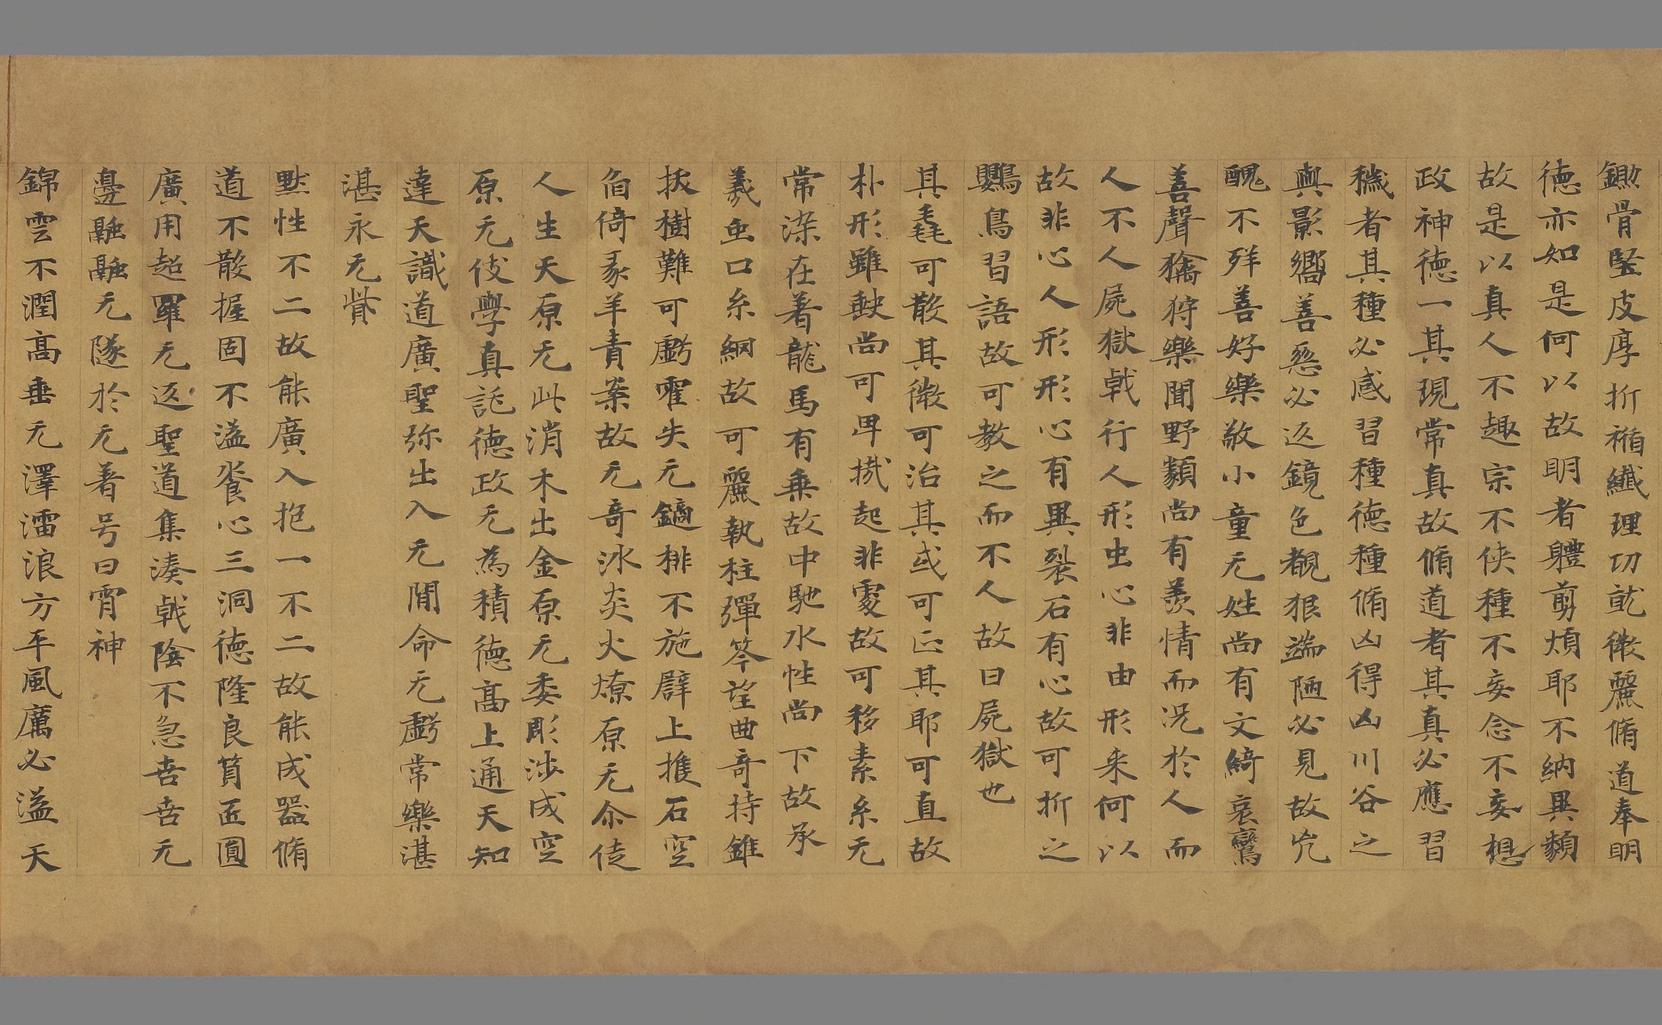 鋤骨堅皮厚折褫纖理功乾徹麗脩道奉明
徳亦如是何以故明者軆剪煩耶不納異類
故是以真人不趣宗不俠種不妄念不妄想
政神徳一其現常真故脩道者其真必應習
穢者其種必感習種徳種脩凶得凶川谷之
與影嚮善惡必返鏡色覩狠端陋必見故
醜不殍善好樂敬小童无姓尚有文綺哀鸞
善聲獝狩樂聞野類尚有羨情而况於人而
人不人屍獄戟行人形虫心非由形来何以
故非心人形形心有異裂石有心故可折之
鸚鳥習語故可教之而不人故曰屍獄也
其毳可散其徵可治其或可正其耶可直故
朴形雖 尚可卑 起非霞故可移素糸无
常染在著龍馬有乗故中馳水性尚下故承
羲 口糸網故可麗執柱彈琴望曲奇持錐
拔樹難可虧霍失无鏑排不施臂上推石空
自倚豕羊青菜故无奇冰炎火燎原无 徒
人生天原无此消木出金原无委彫涉成空
原无伎學真託徳政无為積徳髙上通天知
達天識道廣聖弥出入无閒命无虧常樂湛
湛永无
黙性不二故能廣入抱一不二故能成器脩
道不散握固不溢飡心三洞徳隆良質匠圓
廣用超羅无返聖道集湊戟陰不急 无
邊融融无隧於无著号曰霄神
錦雲不潤髙垂无澤 浪方平風厲必溢天